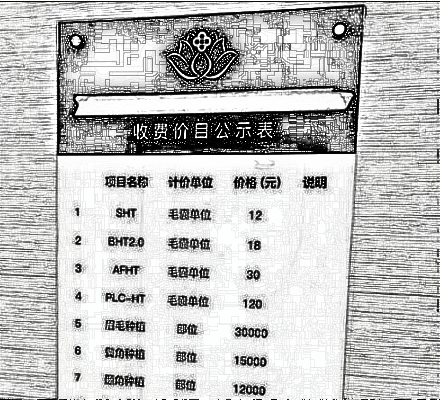 收费价目公示表
项目名称 计价单位 价格(元) 说明
1 SHT 毛囊单位 12
2 BHT2.0 毛囊单位 18
3 AFHT 毛囊单位 30
4 PLC-HT 毛囊单位 120
5 眉毛种植 部位 30000
6 鬓角种植 部位 15000
7 部位 12000